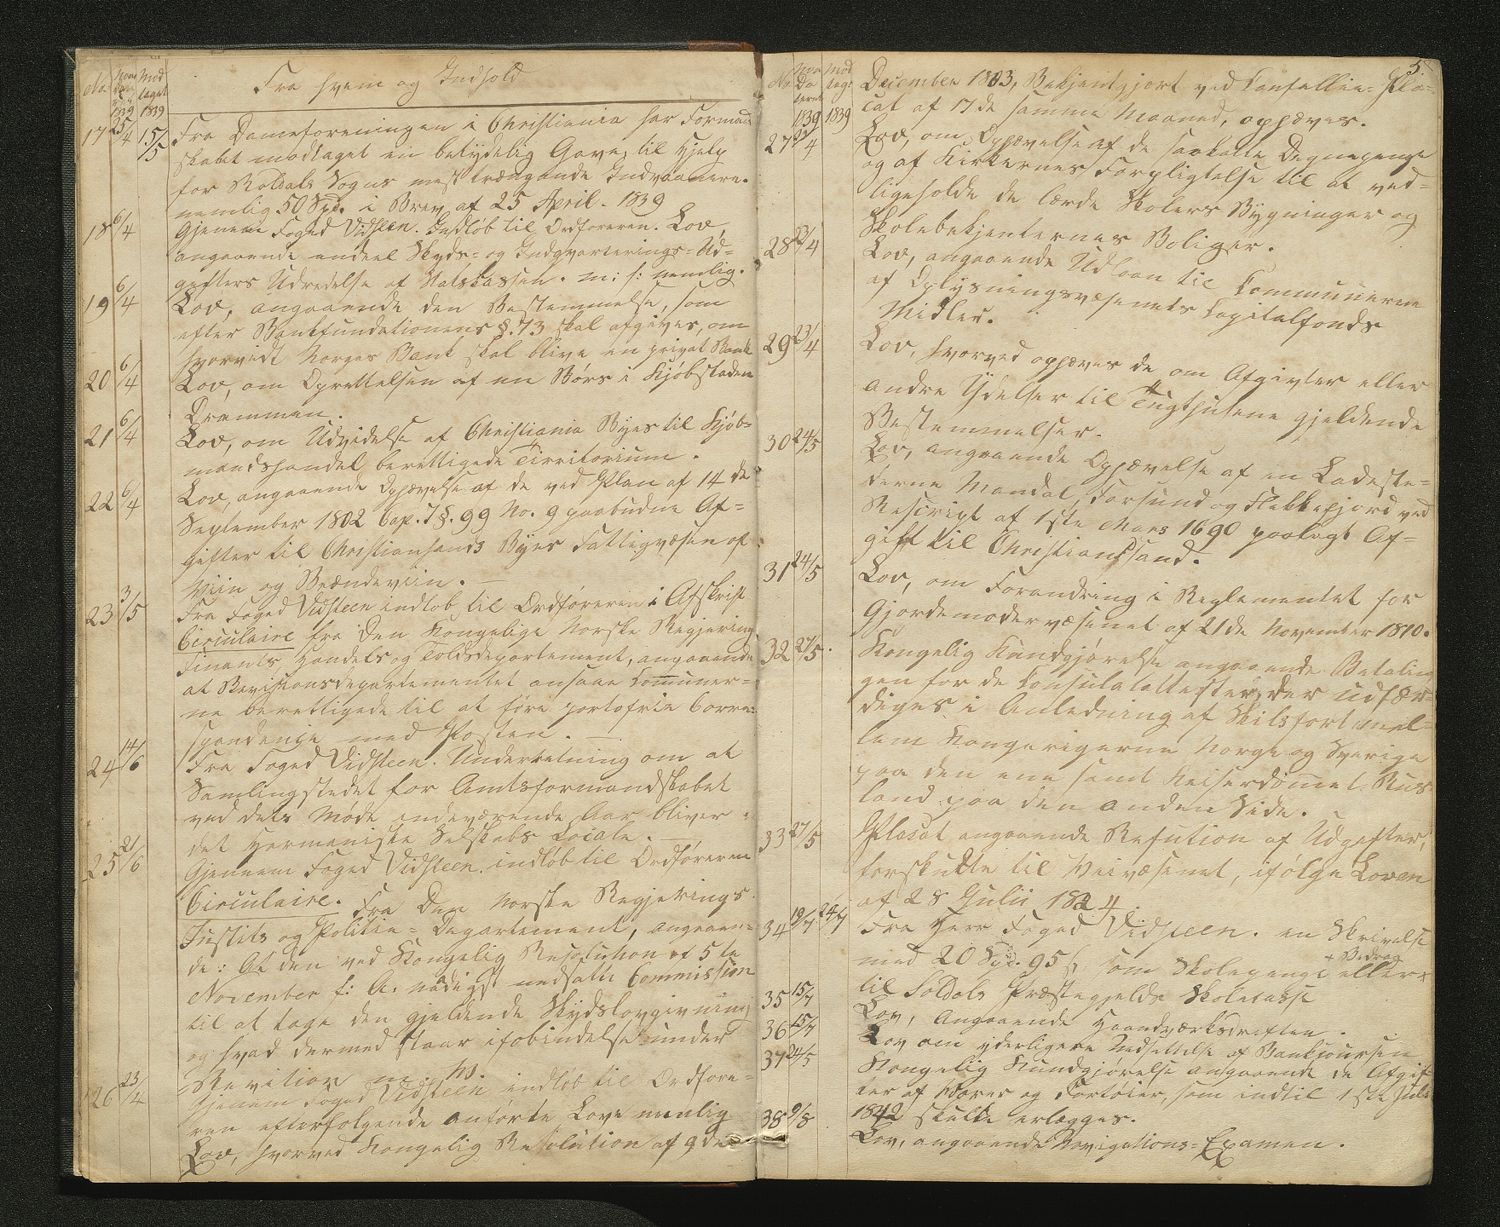 No. Naar Da- teret 1839 Mod taget 1839 Fra hvem og Indhold
17 25/4 15/5 Fra Dameforeningen i Christiania har Formand
skabet modtaget en betydelig Gave, til Hjelp
for Roldals Sogns mest trængende Indvaanere.
nemlig 50 Spd. i Brev af 25 April. 1839
18 6/4 Gjenem Foged Vidsteen. Indløb til Ordføreren. Lov,
angaaende endeel Skyds- og Indqvarterings-Ud-
gifters Udredelse af Statskassen. m: f: nemlig.
19 6/4 Lov, angaaende den Bestemmelse, som
efter Bankfundationens §.73 skal afgives, om
hvorvidt Norges Bank skal blive en privat Bank
20 6/4 Lov, om Oprettelsen af en Børs i Kjøbstaden
Drammen.
21 6/4 Lov, om Udvidelse af Christiania Byes til Kjøb-
mandshandel berettigede Tirritorium.
22 6/4 Lov, angaaende Ophævelse af de ved Plan af 14de
September 1802 Cap. 7 §. 99 No. 9 paabudne Af-
gifter til Christiansands Byes Fattigvæsen af
Viin og Brændeviin.
23 3/5 Fra Foged Vidsteen indløb til Ordføreren i Afskrift
Circulaire fra Den Kongelige Norske Regjerings
Finants Handels og Toldsdepartement, angaaende
at Revisionsdepartementet ansaae Communer-
ne berettigede til at føre portofrie Corre-
spondence med Posten.
24 14/6 Fra Foged Vidsteen. Underretning om at
Samlingstedet for Amtsformandskabet
ved dets Møde indeværende Aar bliver
det Harmoniske Selskabs Locale.
25 21/6 Gjennem Foged Vidsteen indløb til Ordføreren
Circulaire. Fra Den Norske Regjerings
Justits og Politie-Departement, angaaen-
de: At den ved Kongelig Resolution af 5te
November f: A. nådigst nedsatte Commission
til at tage den gjeldende Skydslovgivning
og hvad dermed staar i forbindelse under
Revition m. m.
26 23/4 Gjenem Foged Vidsteen indløb til Ordføre-
ren efterfølgende anførte Love nemlig
Lov, hvorved Kongelig Resolution af 9de
5.
No. Naar Da teret 1839 Mod tagt 1839 December 1803, Bekjentgjort ved Cantsellie-Pla-
cat af 17de samme Maaned, ophæves.
27 23/4 Lov, om Ophævelse af de saakaldte Degnepenge
og af Kirkernes Forpligtelse til at ved-
ligeholde de lærde Skolers Bygninger og
Skolebetjenternes Boliger.
28 23/4 Lov, angaaende Udlaan til Communerne
af Oplysningsvæsenets Capitalfonds
Midler.
29 23/4 Lov, hvorved ophæves de om Afgivter eller
andre Ydelser til Tugthusene gjeldende
Bestemmelser.
30 24/5 Lov, angaaende Ophævelse af en Ladeste-
derne Mandal, Farsund og Flekkefjord ved
Rescript af 1ste Mars 1690 paalagt Af-
gift til Christianssand.
31 24/5 Lov, om Forandring i Reglementet for
Gjordemodervæsenet af 21de November 1810.
32 27/5 Kongelig Kundgjørelse angaaende Betalin
gen for de Consulatattester, der udfær-
diges i Anledning af Skibsfart mel-
lem Kongerigerne Norge og Sverige
paa den ene samt Keiserdømet Rus
land paa den anden Side.
33 27/5 Placat angaaende Refution af Udgifter,
forskudte til Veivæsenet, ifølge Loven
af 28 Julii 1824.
34 19/7 24/7 Fra Herr Foged Vidsteen. en Skrivelse
med 20 Spd. 95 ß som Skolepenge eller
+ Bedrag
til Søldals Præstegjelds Skolekasse
35 15/7 Lov, Angaaende Haandværksdriften.
36 15/7 Lov om yderligere Nedsettelse af Bankcoursen
37 24/5 Kongelig Kundgjørelse angaaende de Afgif
ter af Varer og Fartøier, som indtil 1ste Juli
1842 skulle erlægges.
38 9/8 Lov, angaaende Navigations-Examen.